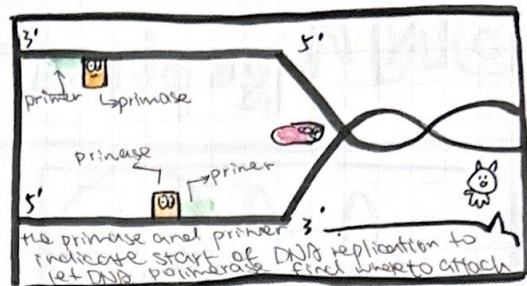 3'
5'
primer
primase
primase
primer
5'
3'
the primase and primer
indicate start of DNA replication to
let DNA polimerase find where to attach